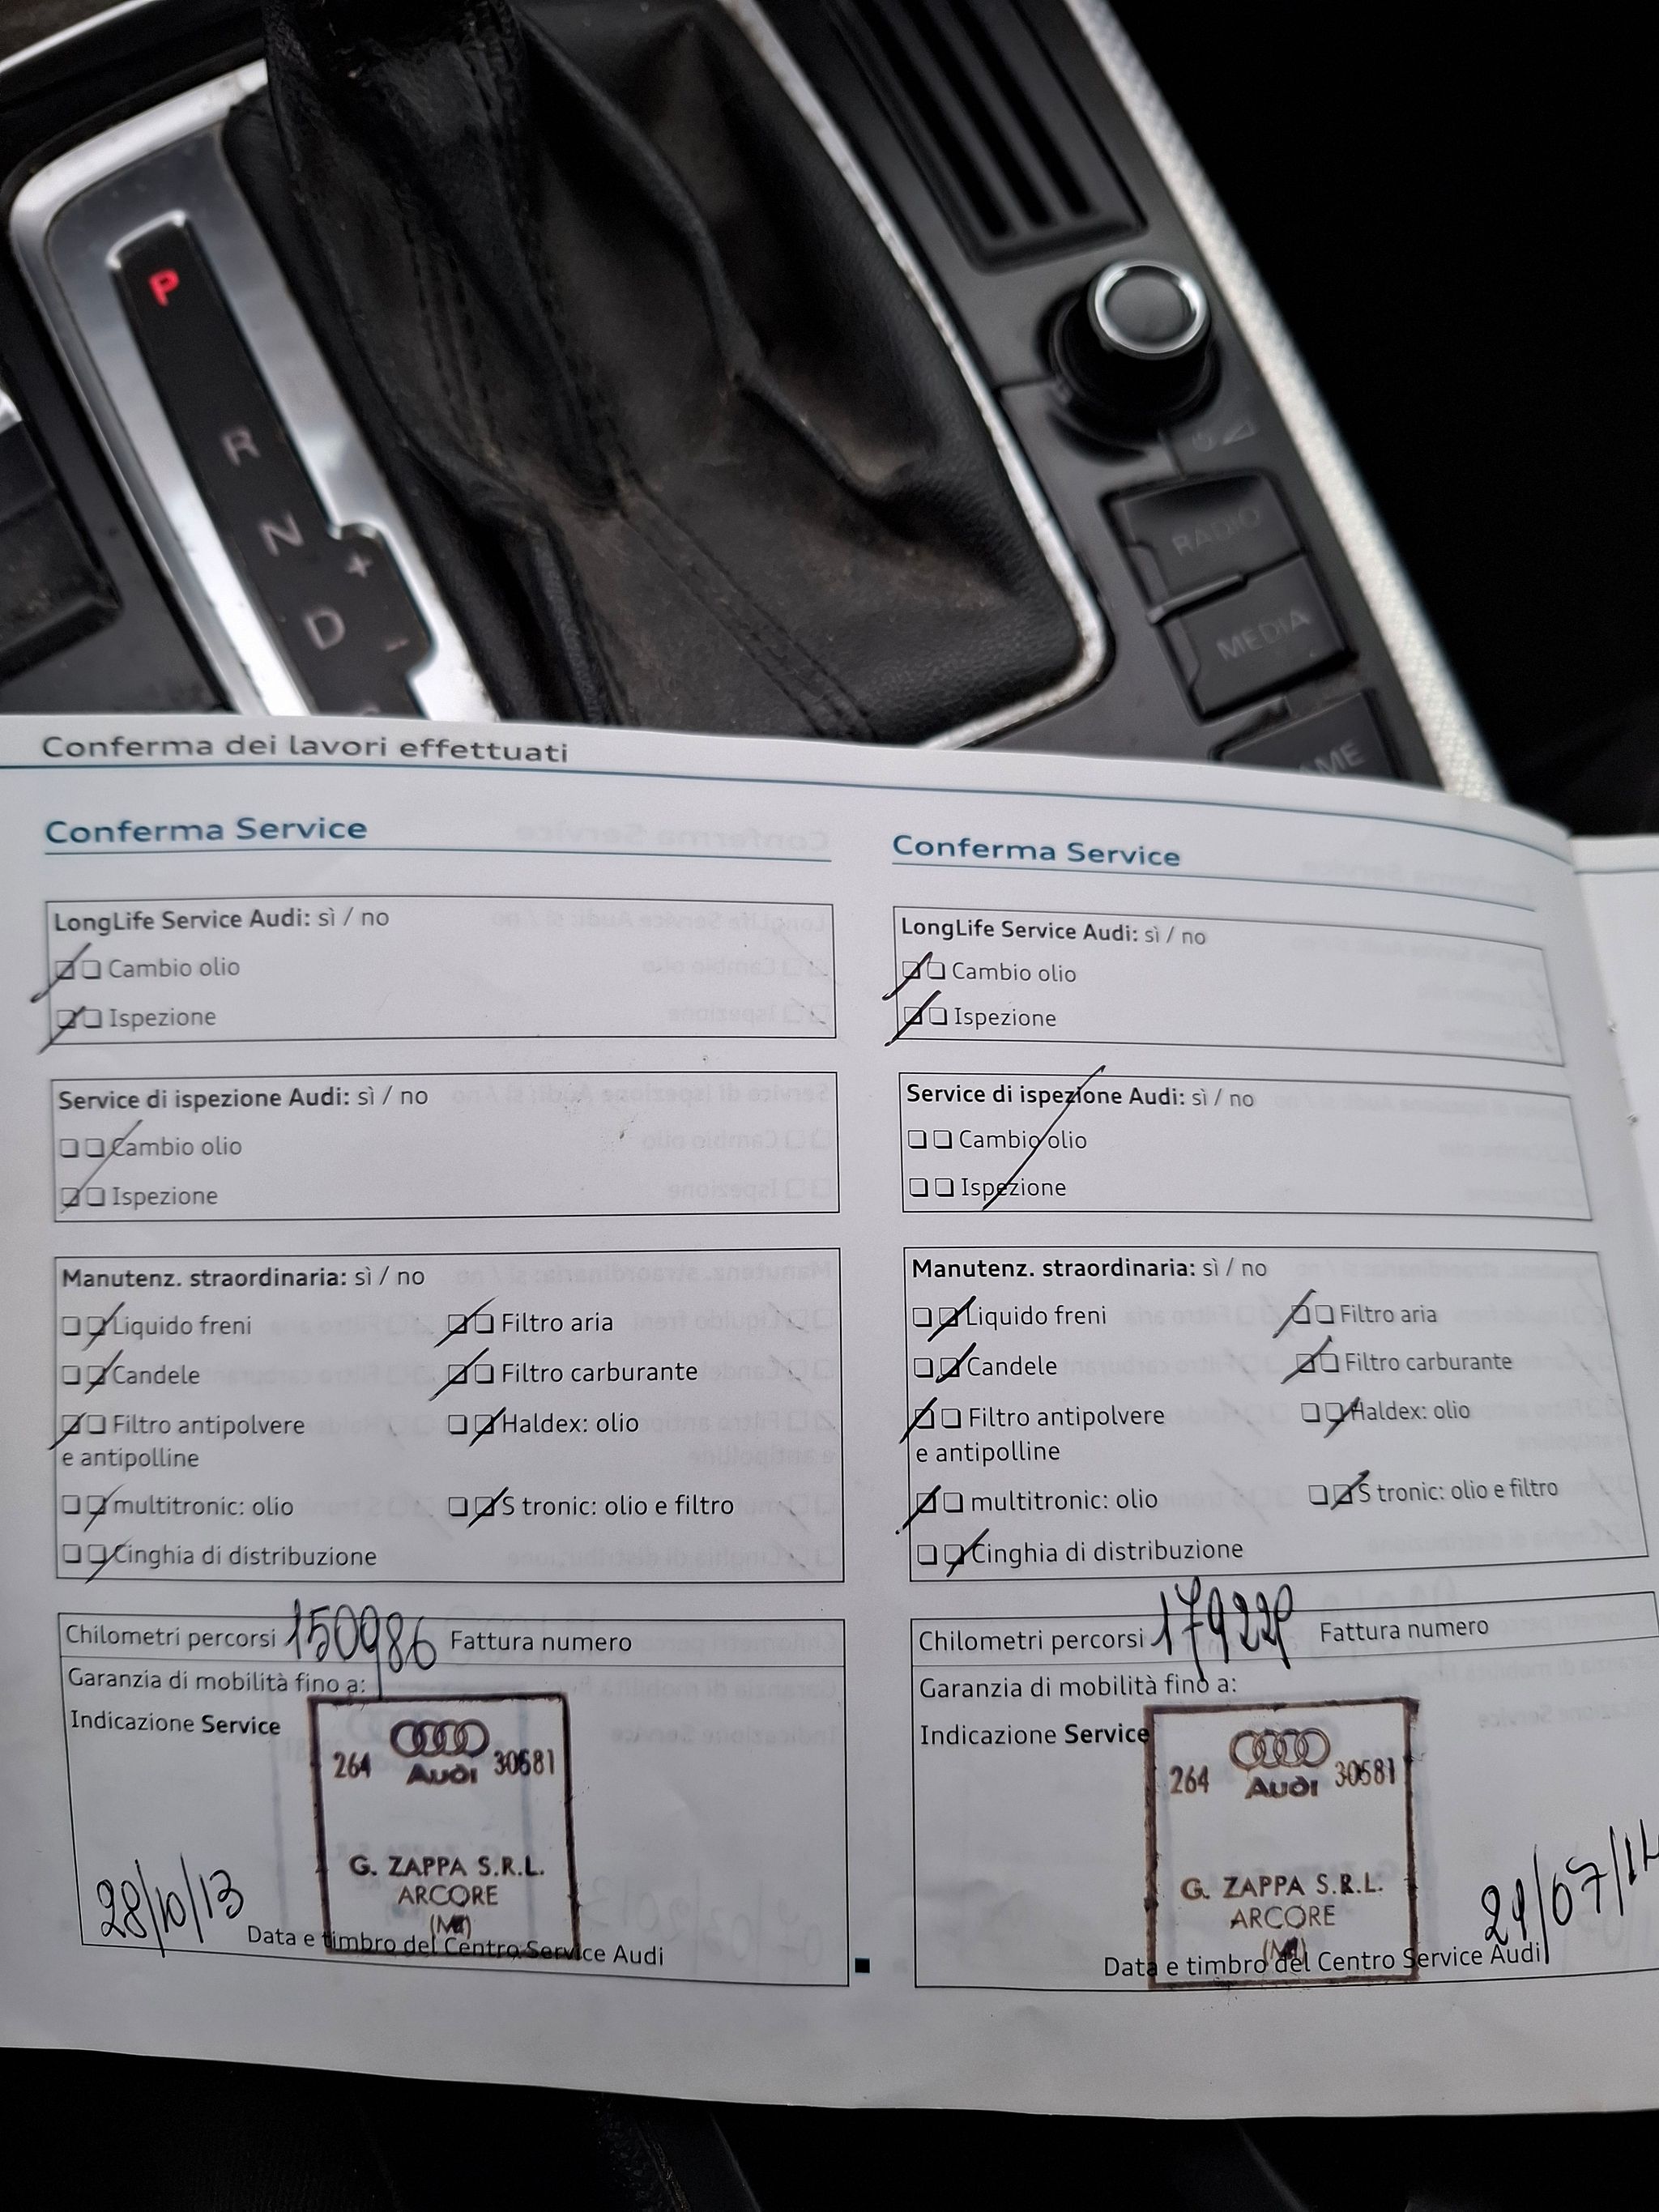 P
R
N
+
D
-
RADIO
MEDIA
Conferma dei lavori effettuati
Conferma Service
LongLife Service Audi: sì / no
Cambio olio
Ispezione
Service di ispezione Audi: sì / no
Cambio olio
Ispezione
Manutenz. straordinaria: sì / no
Liquido freni
Filtro aria
Candele
Filtro carburante
Filtro antipolvere
e antipolline
Haldex: olio
multitronic: olio
S tronic: olio e filtro
Cinghia di distribuzione
Chilometri percorsi 150986 Fattura numero
Garanzia di mobilità fino a:
Indicazione Service
264 Audi 30581
G. ZAPPA S.R.L.
ARCORE
(MI)
28/10/13
Data e timbro del Centro Service Audi
Conferma Service
LongLife Service Audi: sì / no
Cambio olio
Ispezione
Service di ispezione Audi: sì / no
Cambio olio
Ispezione
Manutenz. straordinaria: sì / no
Liquido freni
Filtro aria
Candele
Filtro carburante
Filtro antipolvere
e antipolline
Haldex: olio
multitronic: olio
S tronic: olio e filtro
Cinghia di distribuzione
Chilometri percorsi Fattura numero
Garanzia di mobilità fino a:
Indicazione Service
264 Audi 30581
G. ZAPPA S.R.L.
ARCORE
(MI)
Data e timbro del Centro Service Audi